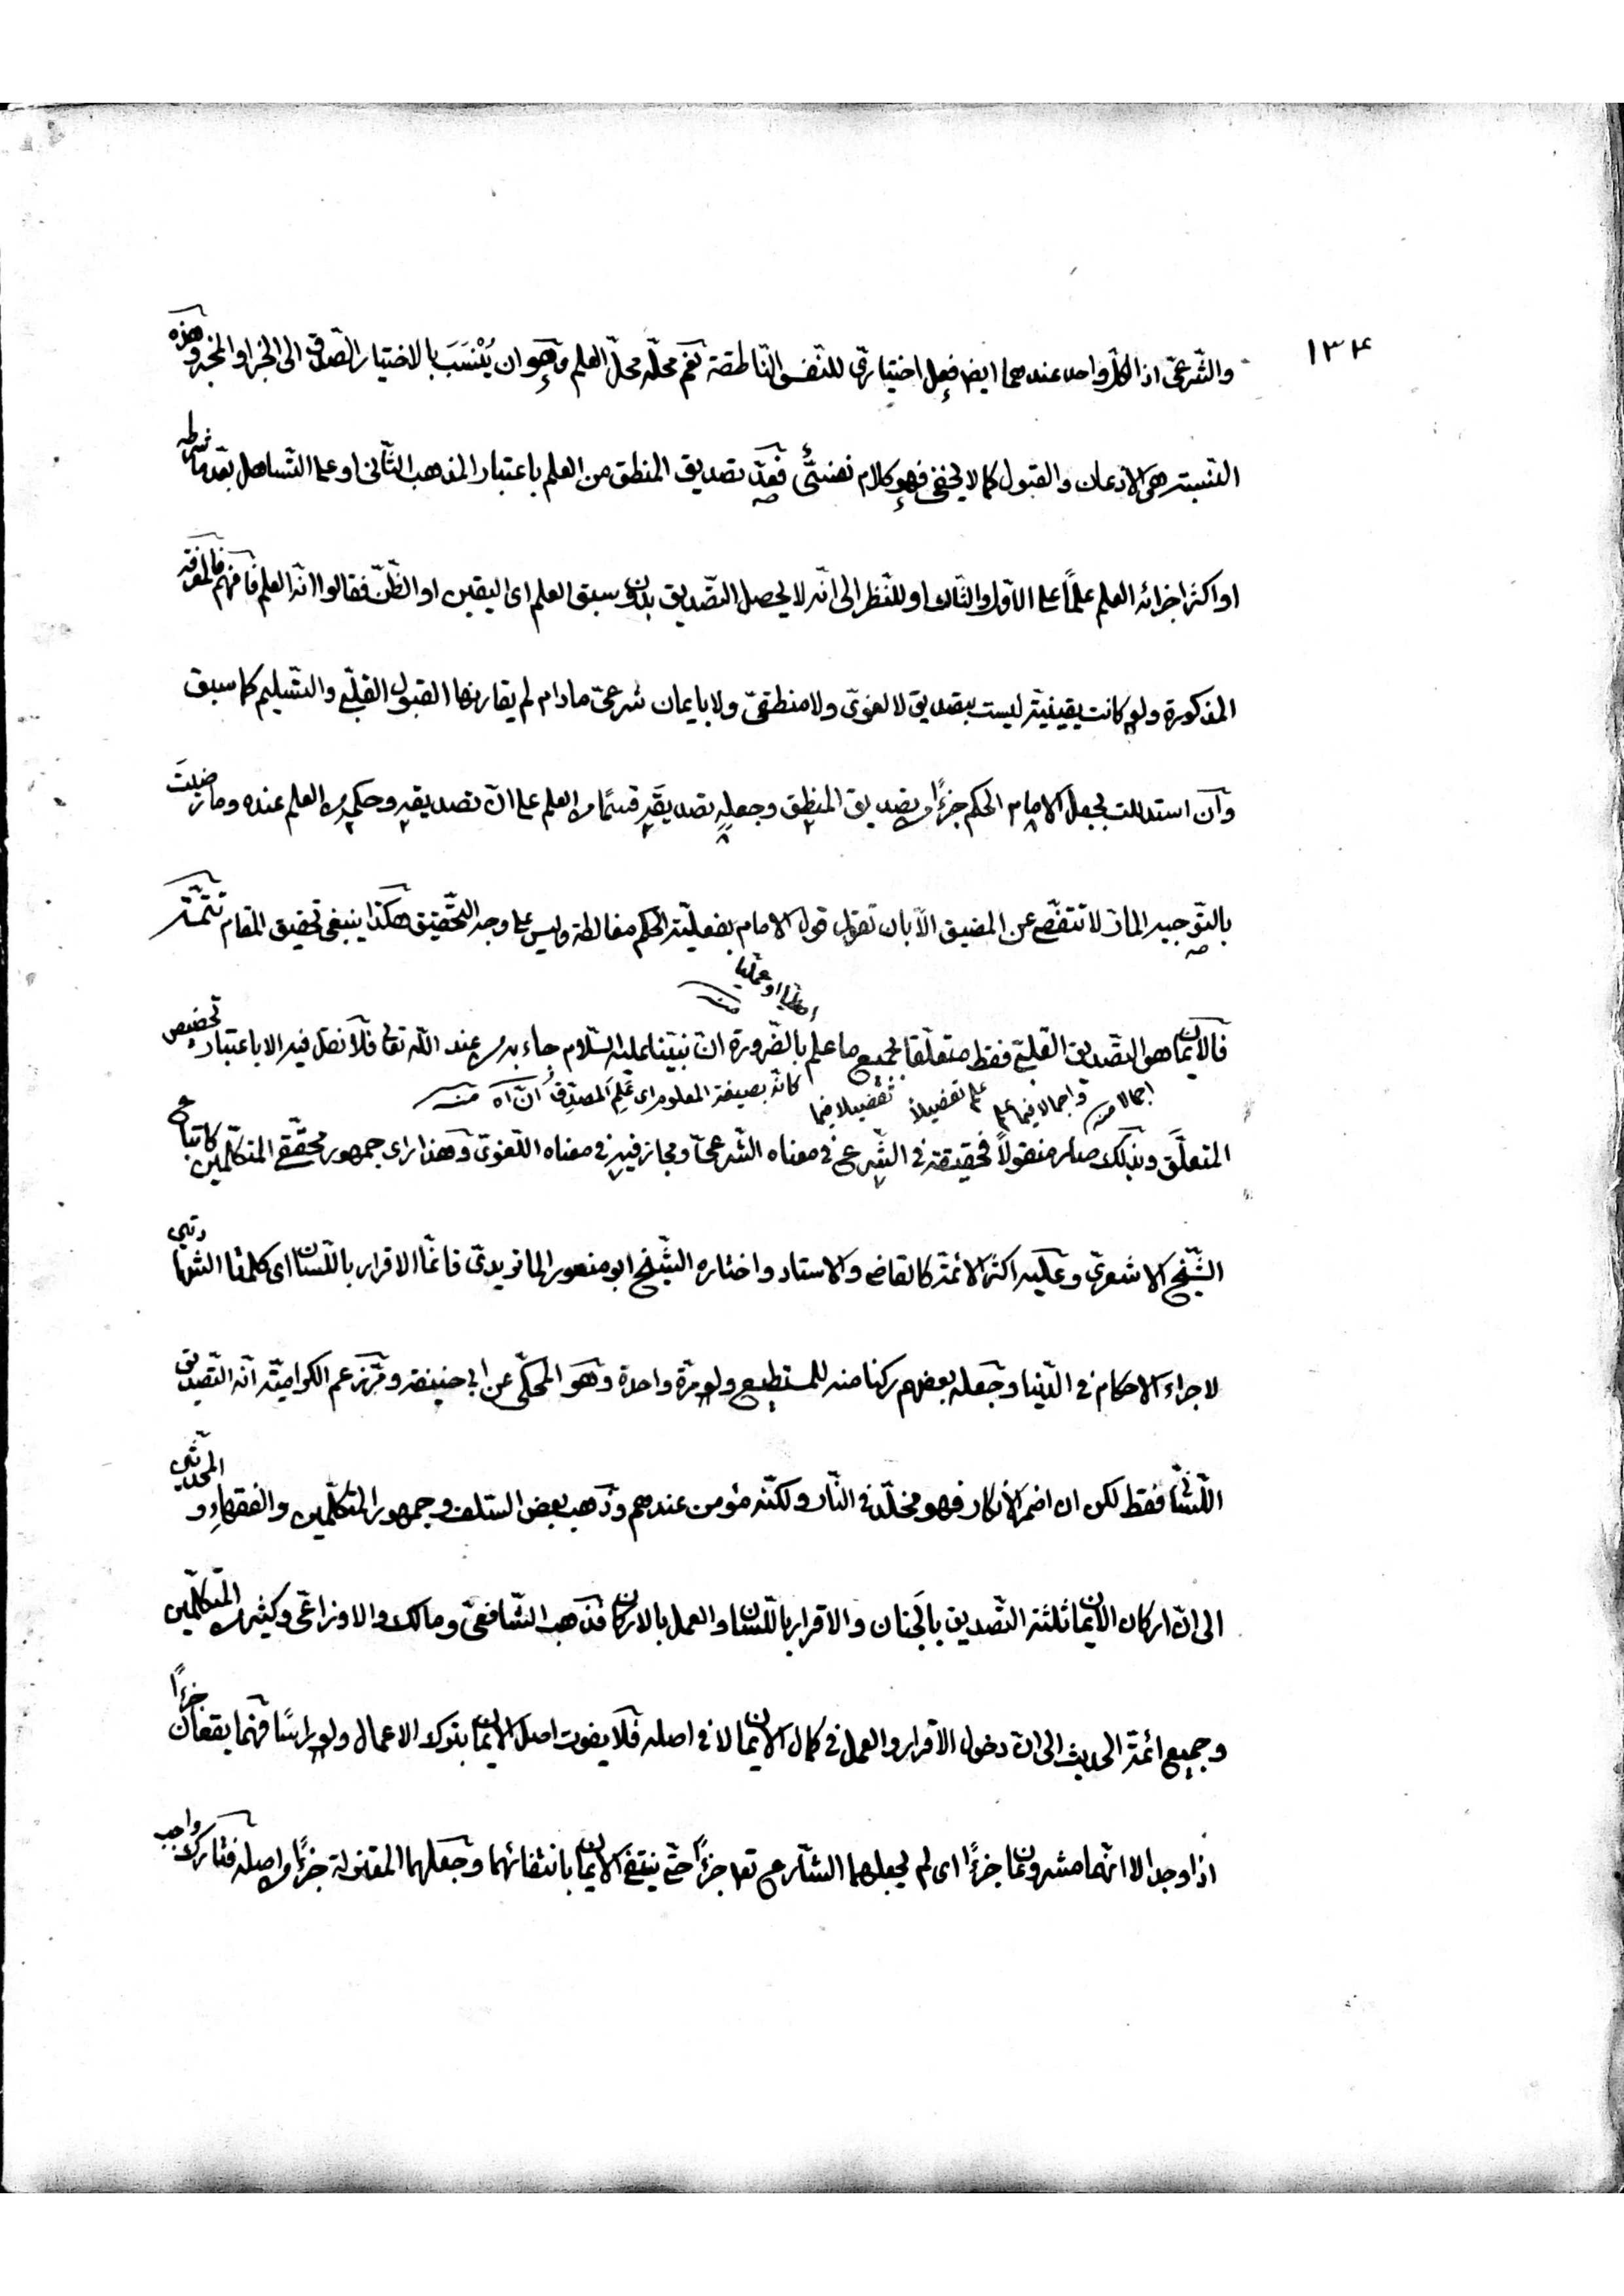 ١٣٤
والشّرعىّ اذ الكلّ واحد عندهما ايض فعل اختيارىّ للنّفس النّاطقة نعم محلّه محلّ العلم وهو ان يُنْسَبَ بالاختيار الصّدق الى الخبر او المخبر وهذه
النّسبة هى الاذعان والقبول كما لا يخفى فهو كلام نفسىّ فعدّ تصديق المنطق من العلم باعتبار المذهب الثّانى او على التّساهل بعدّ ما شرطه
او اكثر اجزائه العلم علماً على الاوّل والثّالث او للنّظر الى انّه لا يحصل التّصديق بدون سبق العلم اى اليقين او الظّنّ فقالوا انّه العلم فافهم فالمعرفة
المذكورة ولو كانت يقينيّة ليست بتصديق لا لغوىّ ولا منطقىّ ولا بايمان شرعىّ مادام لم يقارنها القبول القلبىّ والتسليم كما سبق
وان استدللت بجعل الامام الحكم جزءًا من تصديق المنطق وجعله تصديقه قسمًا من العلم على انّ تصديقه وحكمه من العلم عنده وما رضيتَ
بالتّوجيه المارّ لا تتفصّى عن المضيق الّا بان تقول قول الامام بفعليّة الحكم مغالطة وليس على وجه التّحقيق هكذا ينبغى تحقيق المقام تتمّة
اصليا او عمليا منه
فالايمان هو التّصديق القلبىّ فقط متعلّقا بجميع ما علم بالضّرورة انّ نبيّنا عليه السّلام جاء به من عند الله تعالى فلا نقل فيه الا باعتبار تخصيص
اجمالا منه واجمالا فيما علم علم تفضيلاً تفضيلا فيما كانّه بصيغة المعلوم اى عَلِمَ المصدّق انّ اه منه
المتعلَّق وبذلك صار منقولاً فحقيقة فى الشّرع فى معناه الشّرعىّ ومجاز فيه فى معناه اللّغوىّ وهذا رأى جمهور محقّقى المتكلّمين كاتباع
الشّيخ الاشعرىّ وعليه اكثر الائمّة كالقاضى والاستاد واختاره الشّيخ ابو منصور الماتريدىّ فانّما الاقرار باللّسان اى كلمتا الشهادتين
لاجراء الاحكام فى الدّنيا وجعله بعضهم ركنا منه للمستطيع ولو مرّة واحدة وهو المحكىّ عن ابى حنيفة ومرّ زعم الكراميّة انّه التّصديق
اللّسانىّ فقط لكن ان اضمر الانكار فهو مخلّد فى النّار ولكنّه مؤمن عندهم وذهب بعض السّلف وجمهور المتكلّمين والفقهاء و المحدّثين
الى انّ اركان الايمان ثلثة التّصديق بالجَنان والاقرار باللّسان والعمل بالاركان فذهب الشّافعىّ ومالك والاوزاعىّ وكثير من المتكلّمين
وجميع ائمّة الحديث الى انّ دخول الاقرار والعمل فى كمال الايمان لا فى اصله فلا يفوت اصل الايمان بترك الاعمال ولو رأسًا فهما يقعان جزءًا
اذا وجدا لا انّهما مشروطان جزءًا اى لم يجعلهما الشّارع تعا جزءًا حتّى ينتفى الايمان بانتفائهما وجعلهما المعتزلة جزءًا من اصله فتارك واجب